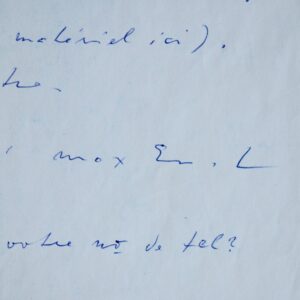 matériel ici).
tre.
max En. L
votre no de tel?